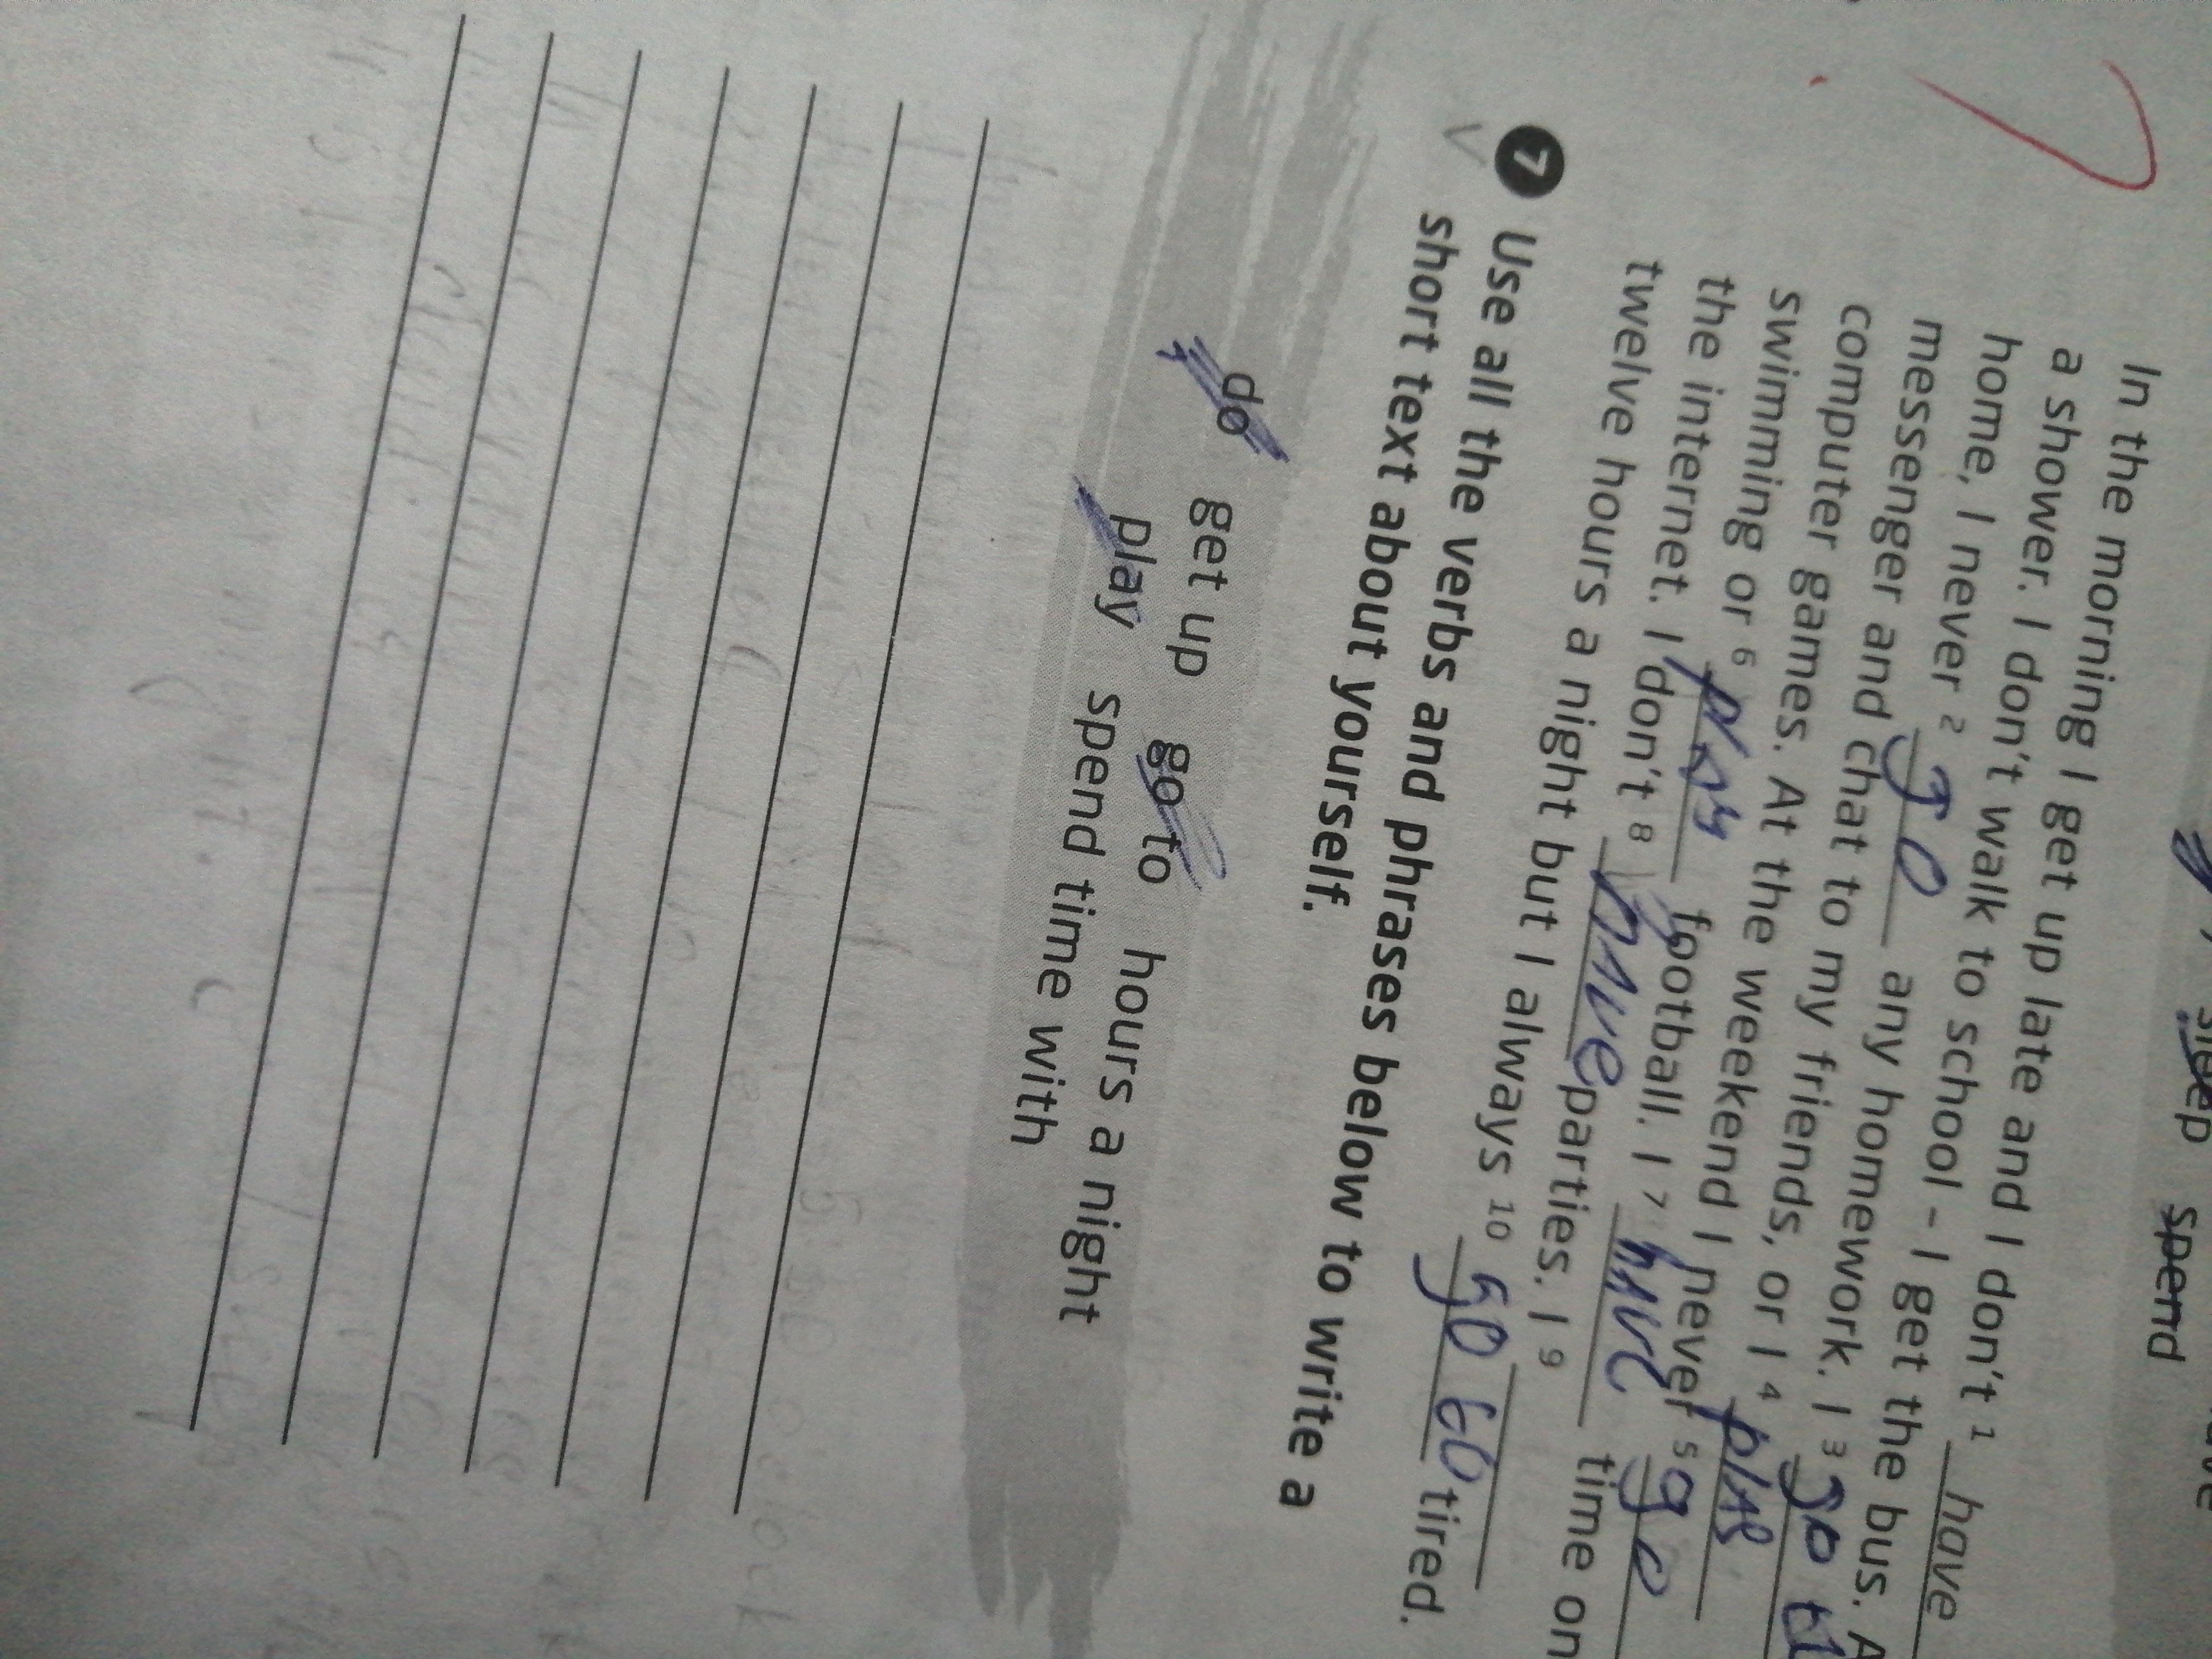 sleep spend
In the morning I get up late and I don't ¹ have
a shower. I don't walk to school – I get the bus. A
home, I never ² go any homework. I ³ go t
messenger and chat to my friends, or I ⁴ play
computer games. At the weekend I never ⁵ go
swimming or ⁶ play football. I ⁷ have time on
the internet. I don't ⁸ have parties. I ⁹
twelve hours a night but I always ¹⁰ go to tired.
7 Use all the verbs and phrases below to write a
short text about yourself.
do get up go to hours a night
play spend time with